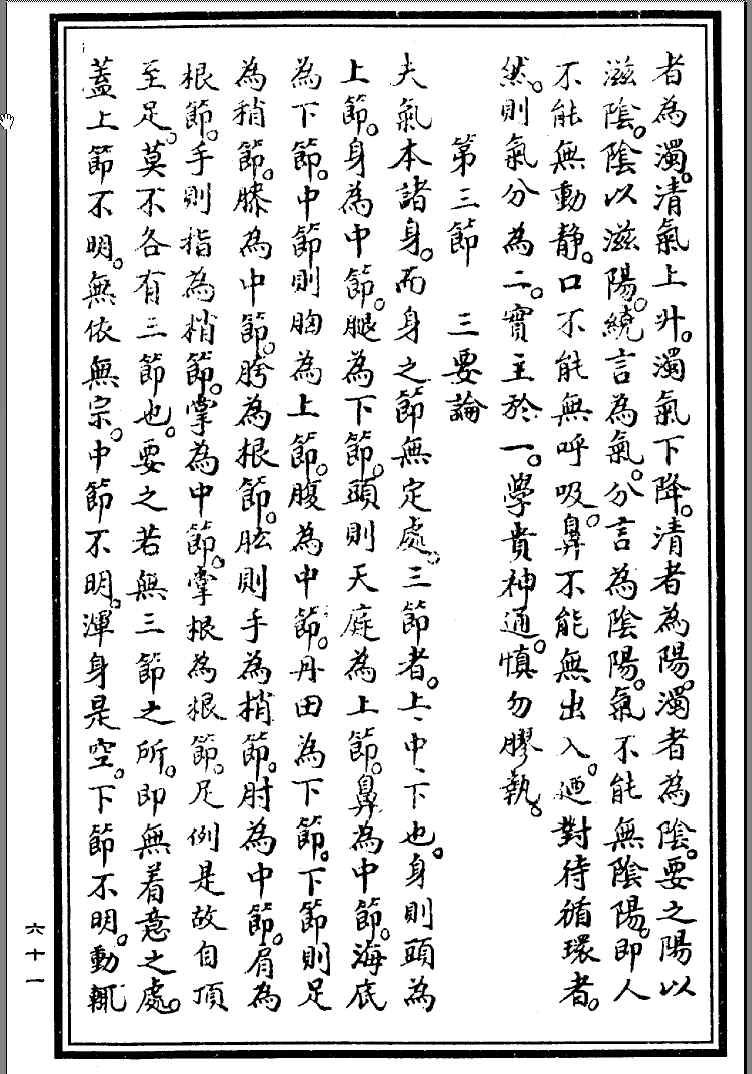 者為濁。清氣上升。濁氣下降。清者為陽。濁者為陰。要之陽以
滋陰。陰以滋陽。統言為氣。分言為陰陽。氣不能無陰陽。即人
不能無動静。口不能無呼吸。鼻不能無出入。迺對待循環者。
然。則氣分為二。實主於一。學貴神通。慎勿膠執。
第三節 三要論
夫氣本諸身。而身之節無定處。三節者。上、中、下也。身則頭為
上節。身為中節。腿為下節。頭則天庭為上節。鼻為中節。海底
為下節。中節則胸為上節。腹為中節。丹田為下節。下節則足
為稍節。膝為中節。胯為根節。肱則手為梢節。肘為中節。肩為
根節。手則指為梢節。掌為中節。掌根為根節。足例是故自頂
至足。莫不各有三節也。要之若無三節之所。即無着意之處。
蓋上節不明。無依無宗。中節不明。渾身是空。下節不明。動輒
六十一